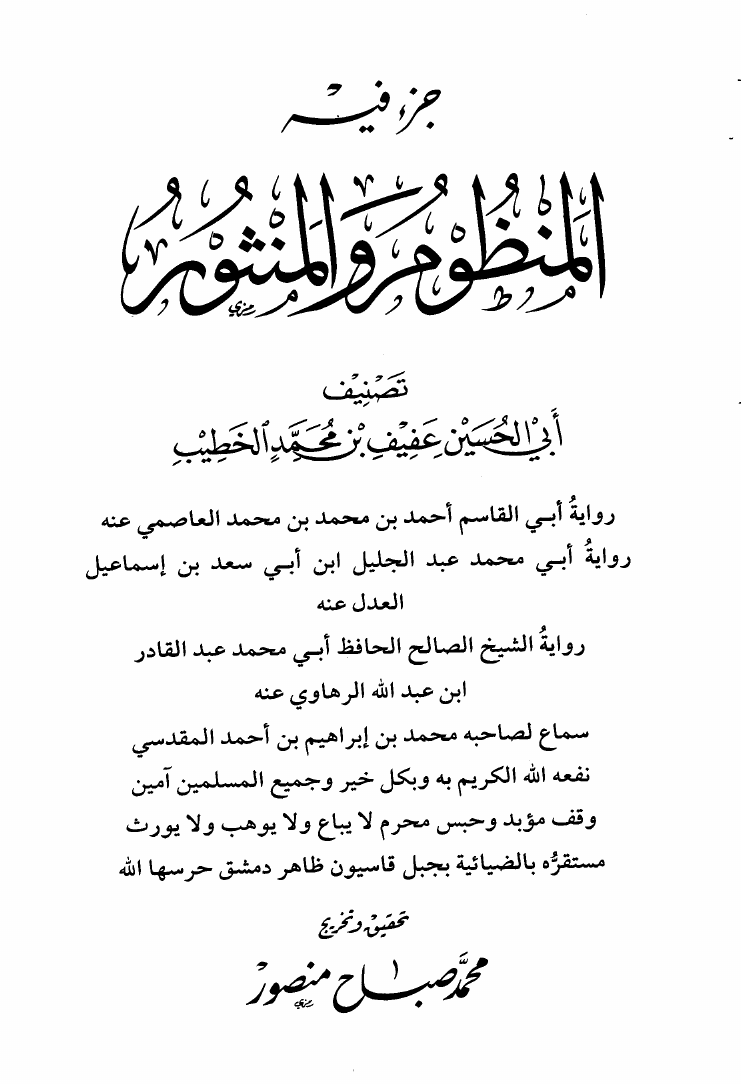 جزء فيه
المنظوم والمنثور
تصنيف
أبي الحسين عفيف بن محمد الخطيب
روايةُ أبي القاسم أحمد بن محمد بن محمد العاصمي عنه
روايةُ أبي محمد عبد الجليل ابن أبي سعد بن إسماعيل
العدل عنه
روايةُ الشيخ الصالح الحافظ أبي محمد عبد القادر
ابن عبد الله الرهاوي عنه
سماع لصاحبه محمد بن إبراهيم بن أحمد المقدسي
نفعه الله الكريم به وبكل خير وجميع المسلمين آمين
وقف مؤبد وحبس محرم لا يباع ولا يوهب ولا يورث
مستقرُّه بالضيائية بجبل قاسيون ظاهر دمشق حرسها الله
تحقيق وتخريج
محمد صباح منصور